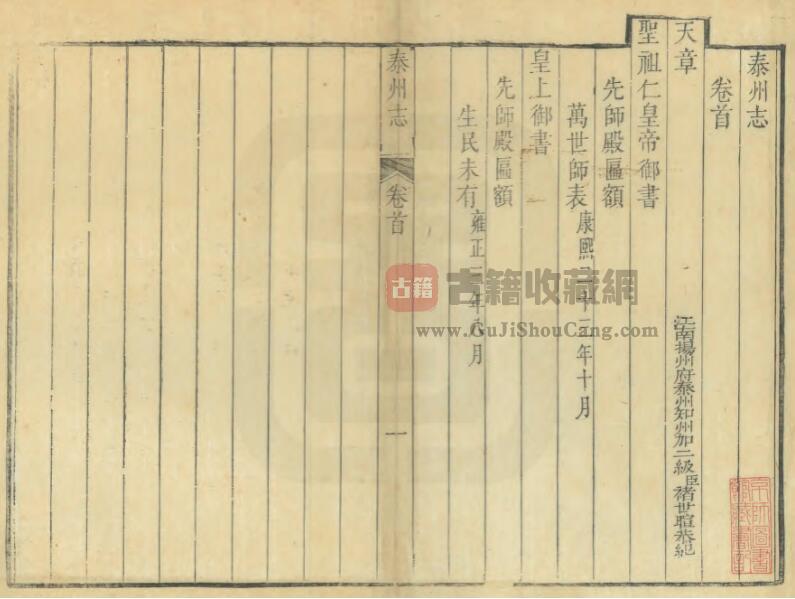 泰州志
卷首
天章
江南揚州府泰州知州加二級臣褚世暄恭紀
聖祖仁皇帝御書
先師殿匾額
萬世師表康熙二十三年十月
皇上御書
先師殿匾額
生民未有雍正三年八月
泰州志
卷首
一
京師圖書館藏書章
古籍
古籍收藏網
www.GuJiShouCang.com